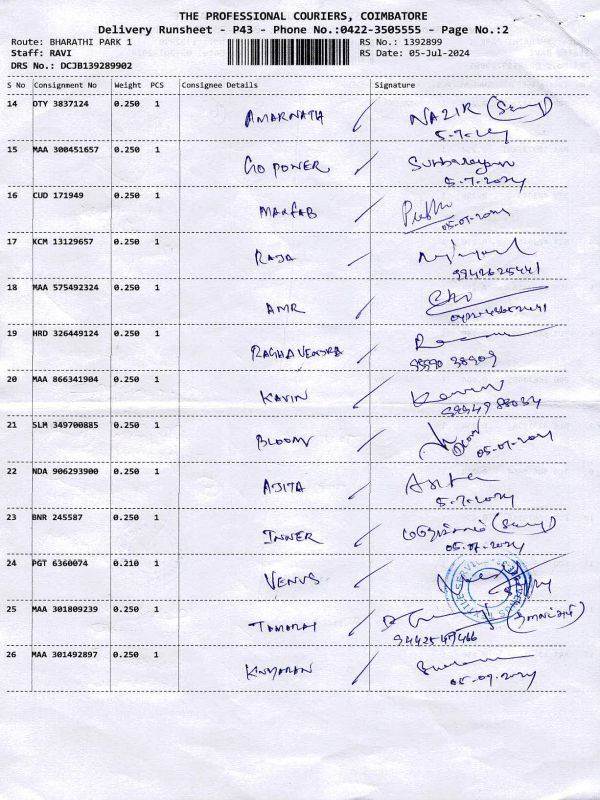 THE PROFESSIONAL COURIERS, COIMBATORE
Delivery Runsheet - P43 - Phone No.:0422-3505555 - Page No.:2
Route: BHARATHI PARK 1 RS No.: 1392899
Staff: RAVI RS Date: 05-Jul-2024
DRS No.: DCJB139289902
S No Consignment No Weight PCS Consignee Details Signature
14 OTY 3837124 0.250 1 AMARNATH NAZIR
15 MAA 300451657 0.250 1 GO POWER
5-7-2024
16 CUD 171949 0.250 1 MARFAB
05-07-2024
17 KCM 13129657 0.250 1 RAJA
9942625441
18 MAA 575492324 0.250 1 AMR
19 HRD 326449124 0.250 1 RAGHAVENDRA
20 MAA 866341904 0.250 1 KAVIN
21 SLM 349700885 0.250 1 BLOOM
05-07-2024
22 NDA 906293900 0.250 1 AJITA
5-7-2024
23 BNR 245587 0.250 1 INNER
05-07-2024
24 PGT 6360074 0.210 1 VENUS
25 MAA 301809239 0.250 1
26 MAA 301492897 0.250 1